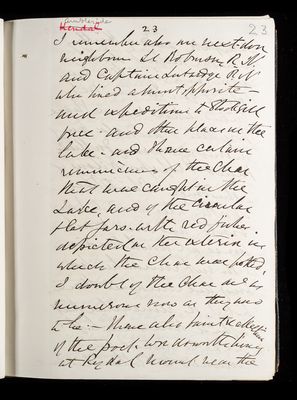 Ambleside
Kendal
23
23
I remember also our next door
neighbour Lt Robinson R.N
and Captain Lutwidge R N
who lived almost opposite –
and expeditions to Stockgill
force – and other places on the
lake – and I have certain
reminiscences of the Char
that were caught in the
Lake, and of the circular
flat jars with red fishes
depicted on the exterior in
which the Char were potted,
I doubt if the Char are as
numerous now as they used
to be :– I have also faint recollections
of the poet Wordsworth living
at Rydal Mount near the